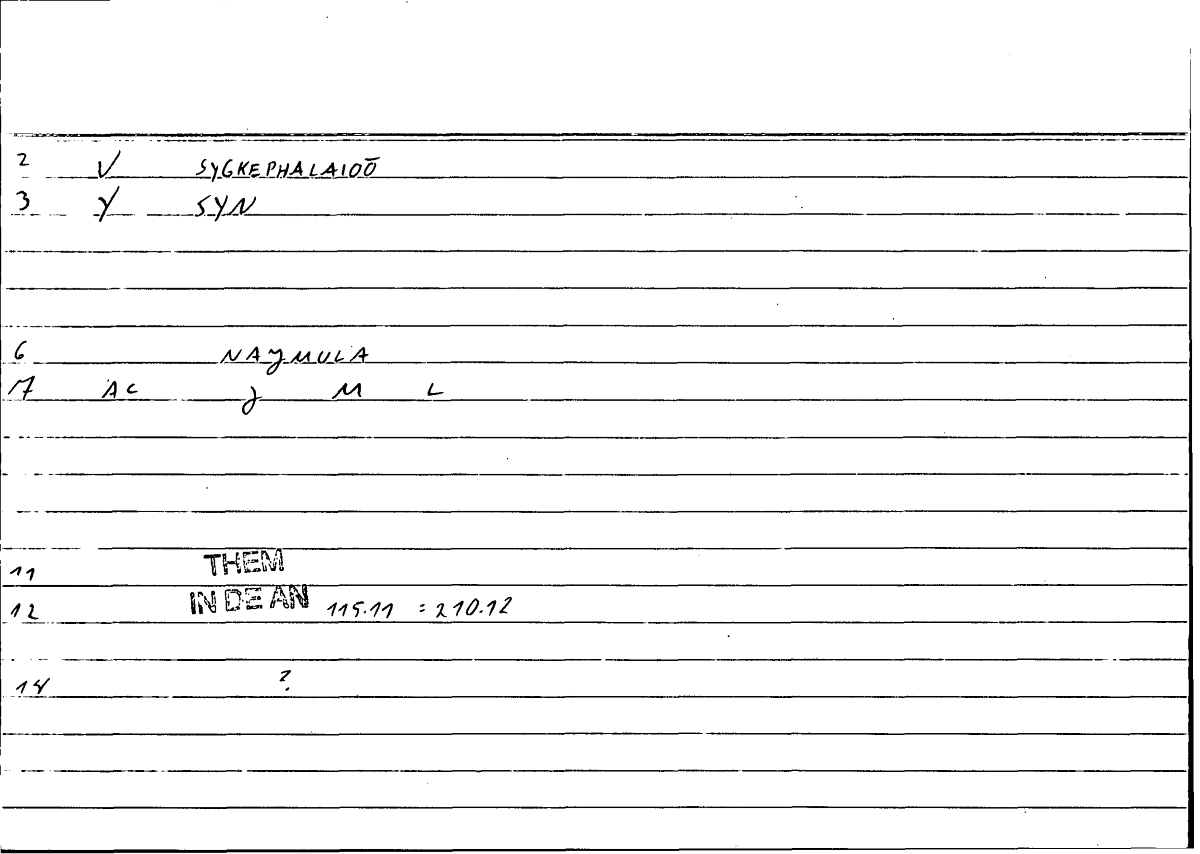 2 V SYGKEPHALAIOŌ
3 Y SYN
6 NAJMULA
17 AC J M L
11 THEM
12 IN DE AN 115.11 = 210.12
14 ?